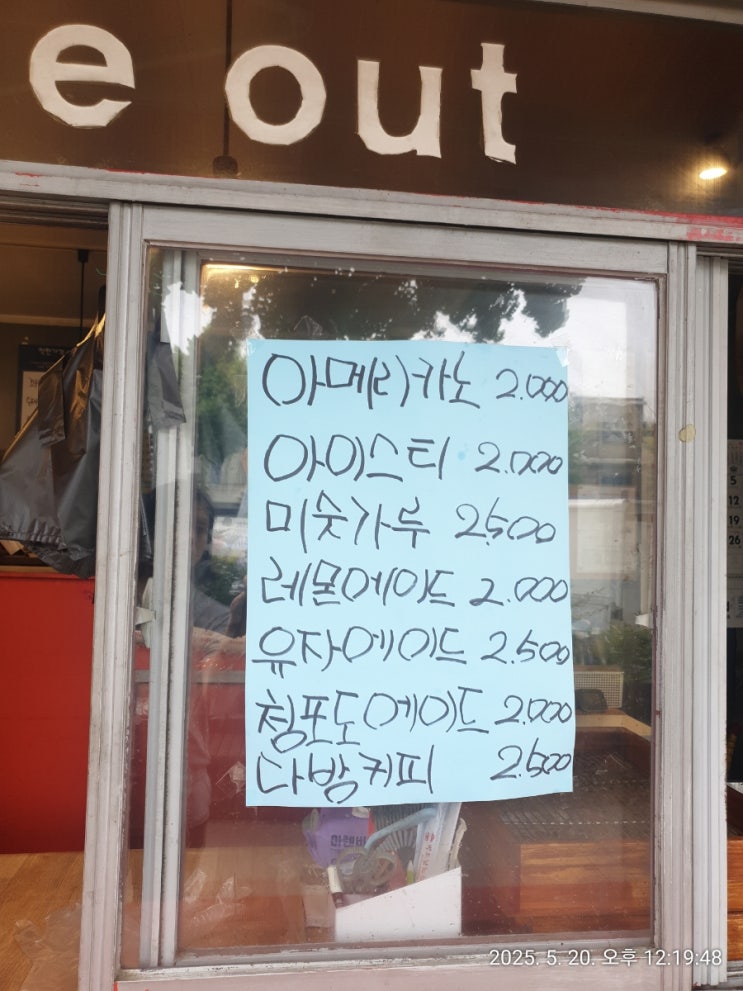 e out
아메리카노 2.000
아이스티 2.000
미숫가루 2.500
레몬에이드 2.000
유자에이드 2.500
청포도에이드 2.000
다방커피 2.500
5
12
19
26
2025. 5. 20. 오후 12:19:48